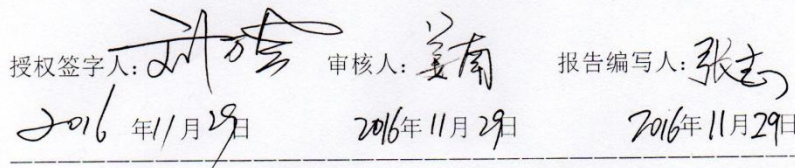 授权签字人: 审核人: 姜南 报告编写人: 张志
2016 年11月29日 2016年11月29日 2016年11月29日